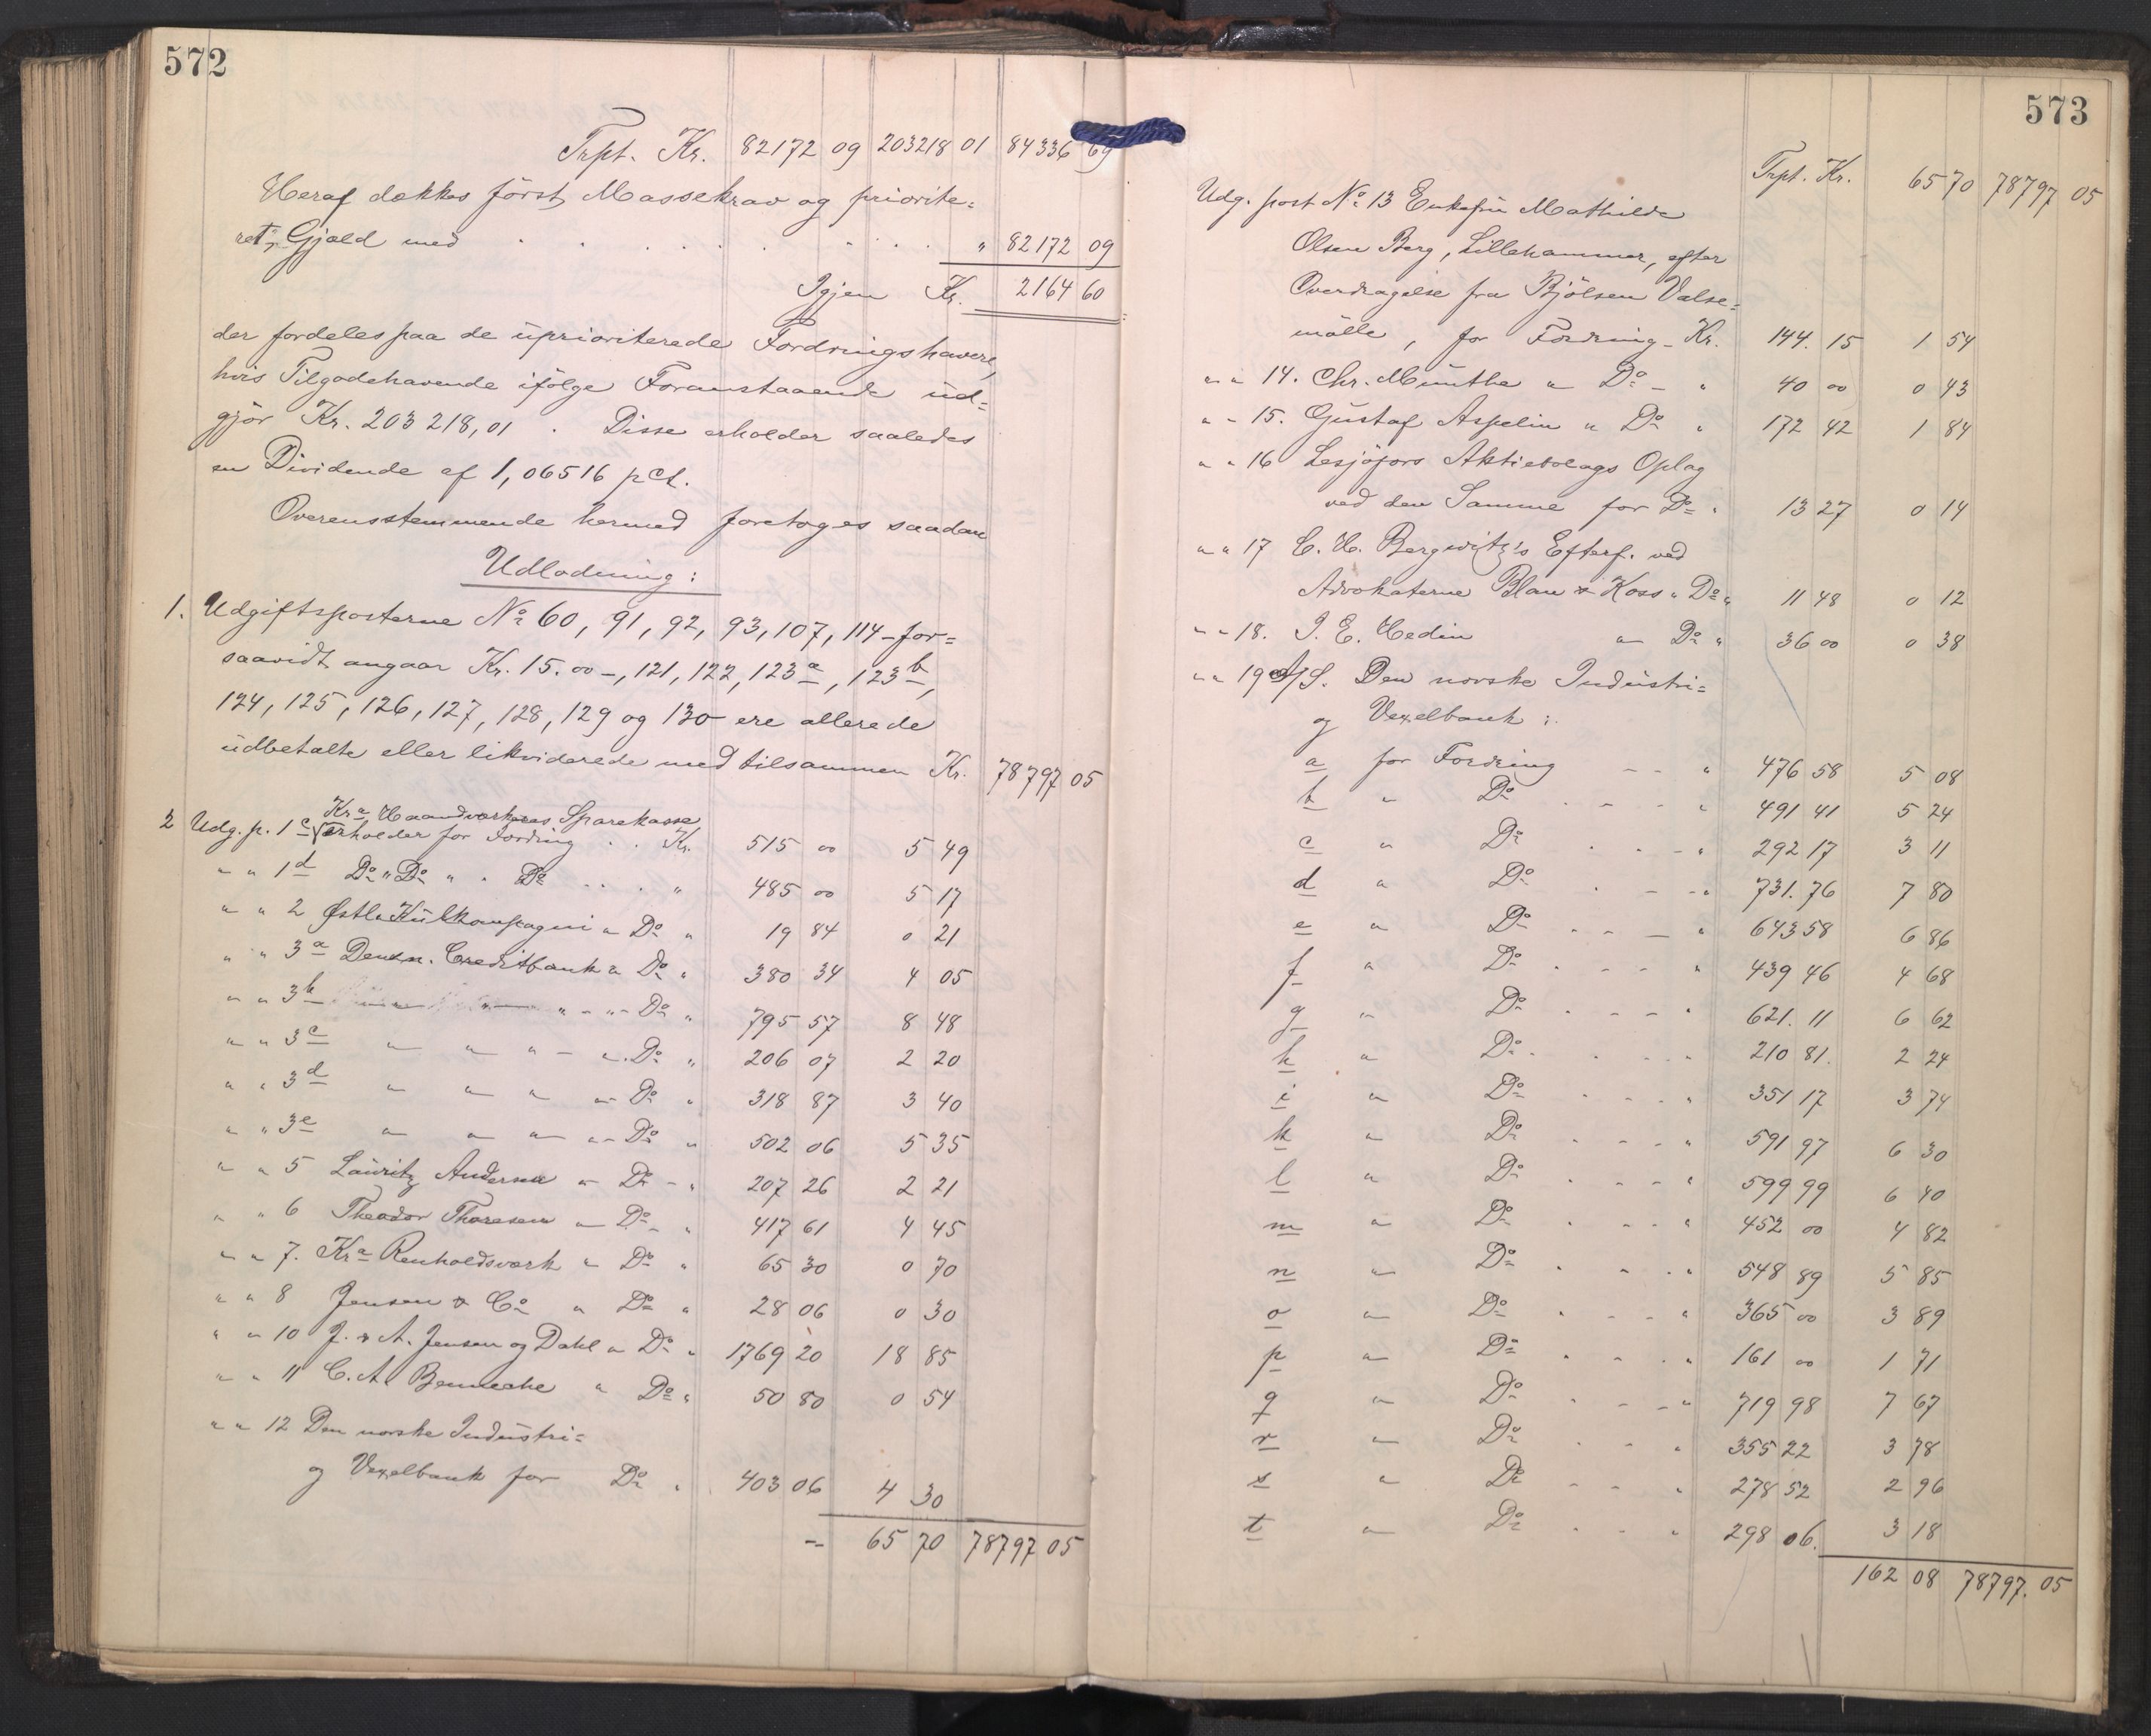 572
Trpt. Kr. 82172 09 203218 01 84336 69
Heraf dækkes först Massekrav og priorite=
ret Gjæld med . . . . . . . . . " 82172 09
Igjen Kr. 2164 60
der fordeles paa de uprioriterede Fordringshavere,
hvis Tilgodehavende ifölge Foranstaaende ud=
gjör Kr. 203 218,01 . Disse erholder saaledes
en Dividende af 1,06516 pCt.
Overensstemmende hermed foretoges saadan
Udlodning:
1. Udgiftsposterne No 60, 91, 92, 93, 107, 114 - for=
saavidt angaar Kr. 15.00 -, 121, 122, 123a, 123b,
124, 125, 126, 127, 128, 129 og 130 ere allerede
udbetalte eller likviderede med tilsammen Kr. 78797 05
Kra Haandværkeres Sparekasse
2 Udg. p. 1c √ erholder for Fordring . . Kr. 515 00 5 49
" " 1d Do " Do " . Do . . . " 485 00 5 17
" " 2 Østl. Kulkompagni " Do " 19 84 0 21
" " 3a Den n. Creditbank " Do " 380 34 4 05
" " 3b " " - " - Do " 795 57 8 48
" " 3c " " " - " . Do " 206 07 2 20
" " 3d " " " " - Do " 318 87 3 40
" " 3e " " " " - Do " 502 06 5 35
" " 5 Lauritz Andersen " Do - " 207 26 2 21
" " 6 Theodor Thoresen " Do - " 417 61 4 45
" " 7. Kra Renholdsværk " Do " 65 30 0 70
" " 8 Jensen & Co " Do " 28 06 0 30
" " 10 J. & A. Jensen og Dahl " Do " 1769 20 18 85
" " 11 C. A. Bennecke " Do " 50 80 0 54
" " 12 Den norske Industri=
og Vexelbank for Do " 403 06 4 30
-- 65 70 78797 05
573
Trpt. Kr. 65 70 78797 05
Udg. post No 13 Enkefru Mathilde
Olsen Berg, Lillehammer, efter
Overdragelse fra Bjölsen Valse=
mölle, for Fordring - Kr. 144. 15 1 54
" " 14. Chr. Münthe " Do - " 40 00 0 43
" - 15. Gustaf Aspelin " Do " 172 42 1 84
" " 16 Lesjöfors Aktiebolags Oplag
ved den Samme for Do " 13 27 0 14
" " 17 C. H. Bergwitz's Efterf. ved
Advokaterne Blau & Koss " Do " 11 48 0 12
" " 18. J. E. Hedin " Do " 36 00 0 38
" " 19 A/S. Den norske Industri=
og Vexelbank:
a for Fordring - - " 476 58 5 08
b " Do . - - " 491 41 5 24
c " Do . . - " 292 17 3 11
d " Do . - - " 731. 76 7 80
e " Do . - - " 643 58 6 86
f " Do . - - " 439 46 4 68
g " Do . - - " 621. 11 6 62
h " Do . . - . " 210 81. 2 24
i " Do . - - " 351 17 3 74
k " Do . - - " 591 97 6 30
l " Do . - - " 599 99 6 40
m " Do . - - " 452 00 4 82
n " Do . - . " 548 89 5 85
o " Do . - - " 365 00 3 89
p " Do . - . " 161 00 1 71
q " Do . - - " 719 98 7 67
r " Do . - " 355 22 3 78
s " Do - - " 278 52 2 96
t " Do . - " 298 06. 3 18
162 08 78797. 05